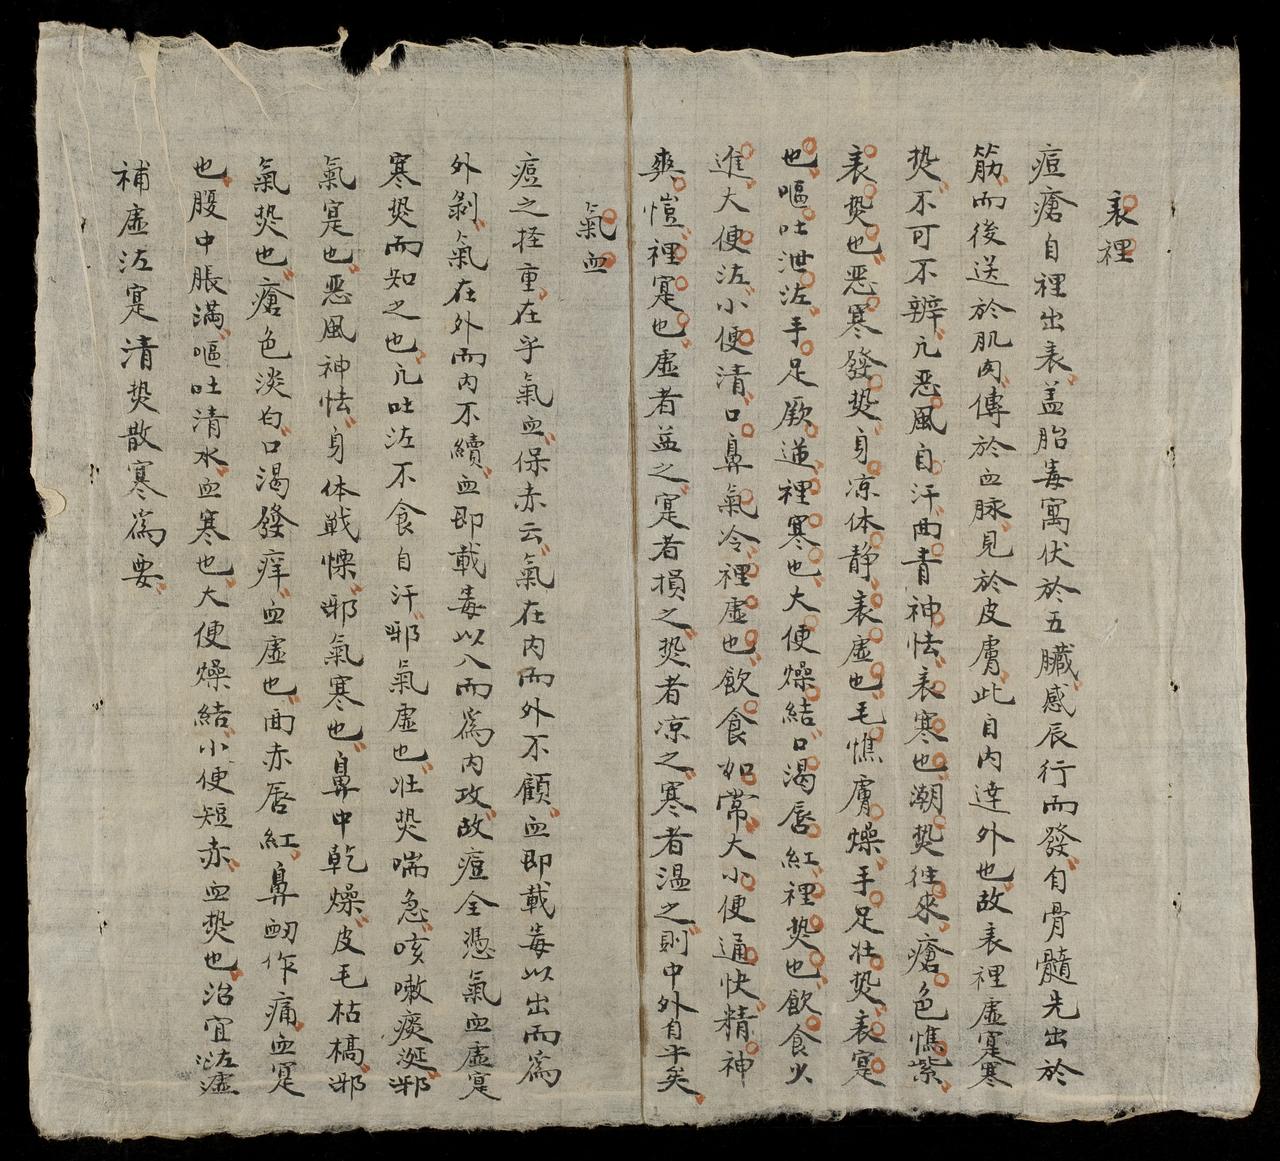 表裡
痘瘡自裡出表盖胎毒寓伏於五臟感辰行而發自骨髓先出於
筋而後送於肌肉傳於血脉見於皮膚此自内逹外也故表裡虚寔寒
𤍠不可不辨凢恶風自汗面青神怯表寒也潮𤍠徃來瘡色憔紫
表𤍠也恶寒發𤍠身凉体静表虚也毛憔膚燥手足壮𤍠表寔
也嘔吐泄泣手足厥逆裡寒也大便燥結口渴唇紅裡𤍠也飲食少
進大便泣小便清口鼻氣冷裡虚也飲食如常大小便通快精神
爽愷裡寔也虚者益之寔者損之𤍠者凉之寒者温之則中外自平矣
氣血
痘之挃重在乎氣血保赤云氣在内而外不顧血即載毒以出而爲
外剝氣在外而内不續血即載毒以入而爲内攻故痘全憑氣血虚寔
寒𤍠而知之也凢吐泣不食自汗邪氣虚也壮𤍠喘急咳嗽痰涎邪
氣寔也恶風神怯身体戦慄邪氣寒也鼻中乾燥皮毛枯槁邪
氣𤍠也瘡色淡白口渴發痒血虚也面赤唇紅鼻衂作痛血寔
也腹中脹满嘔吐清水血寒也大便燥結小便短赤血𤍠也治宜泣虚
補虚泣寔清𤍠散寒爲要